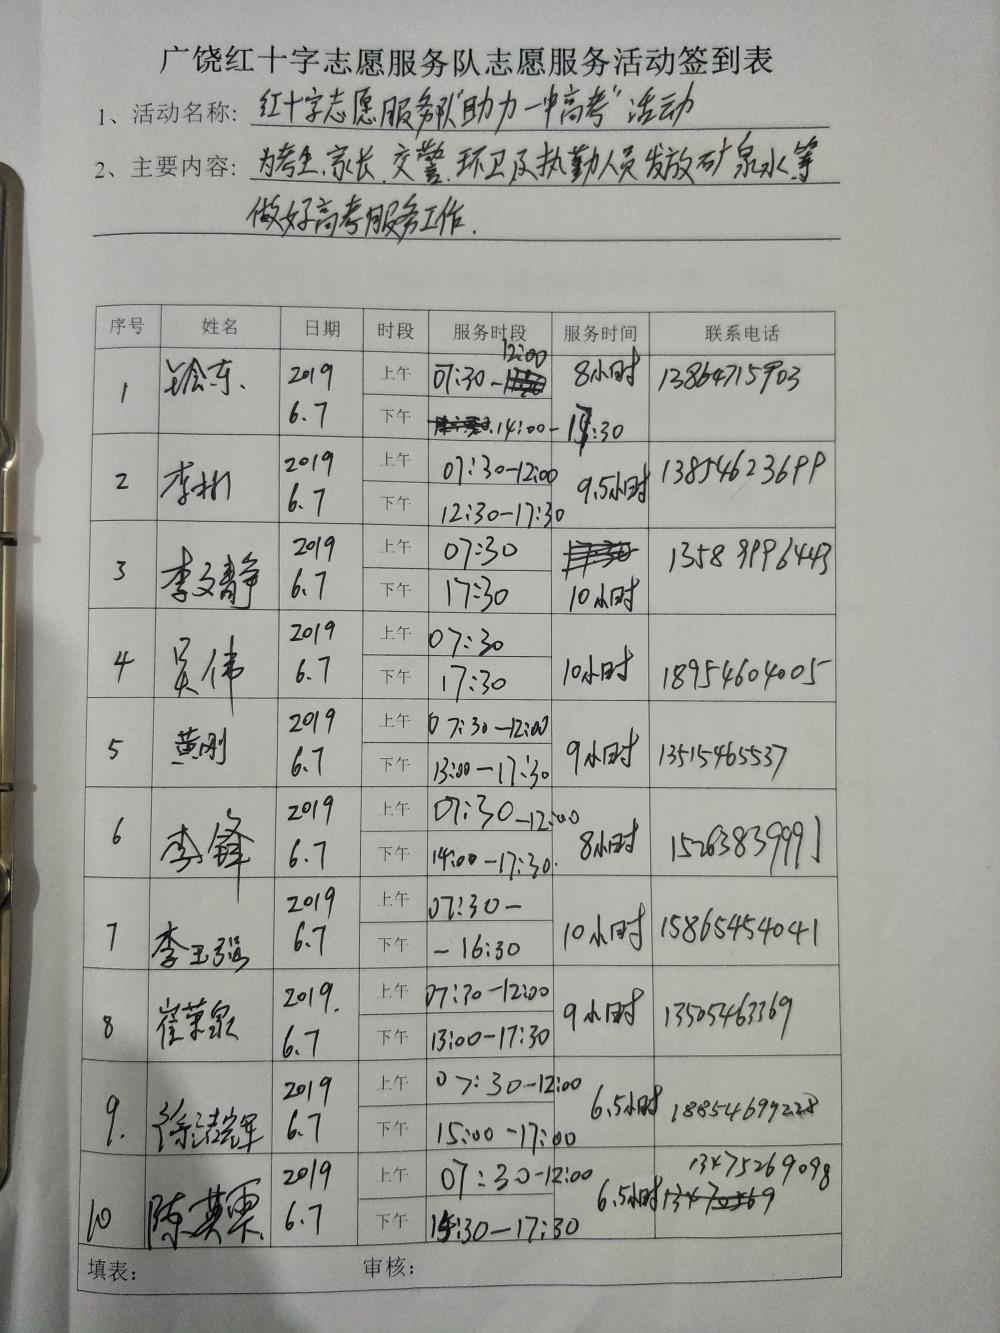 广饶红十字志愿服务队志愿服务活动签到表
1、活动名称: 红十字志愿服务队"助力一中高考"活动
2、主要内容: 为考生、家长、交警、环卫及执勤人员发放矿泉水等
做好高考服务工作.
序号 姓名 日期 时段 服务时段 服务时间 联系电话
1 2019 6.7 上午 07:30-12:00 8小时 13864715903
下午 14:00-17:30
2 李彬 2019 6.7 上午 07:30-12:00 9.5小时 13854623699
下午 12:30-17:30
3 李文静 2019 6.7 上午 07:30 10小时 13589996443
下午 17:30
4 吴伟 2019 6.7 上午 07:30 10小时 18954604005
下午 17:30
5 黄刚 2019 6.7 上午 07:30-12:00 9小时 13515465537
下午 13:00-17:30
6 李锋 2019 6.7 上午 07:30-12:00 8小时 15263839991
下午 14:00-17:30.
7 李玉强 2019 6.7 上午 07:30- 10小时 15865454041
下午 -16:30
8 崔荣泉 2019. 6.7 上午 07:30-12:00 9小时 13505463369
下午 13:00-17:30
9. 2019 6.7 上午 07:30-12:00 6.5小时 18854699228
下午 15:00-17:00
10 陈英栗 2019 6.7 上午 07:30-12:00 6.5小时 13475269098
下午 15:30-17:30
填表: 审核: